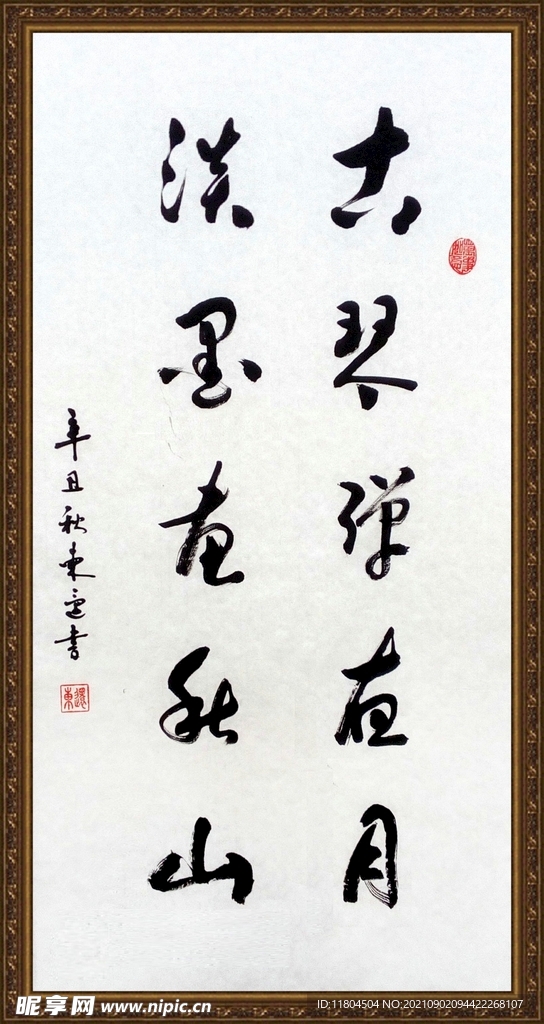 古琴弹夜月
淡墨画秋山
辛丑秋東
書
昵享网 www.nipic.cn
ID:11804504 NO:20210902094422268107